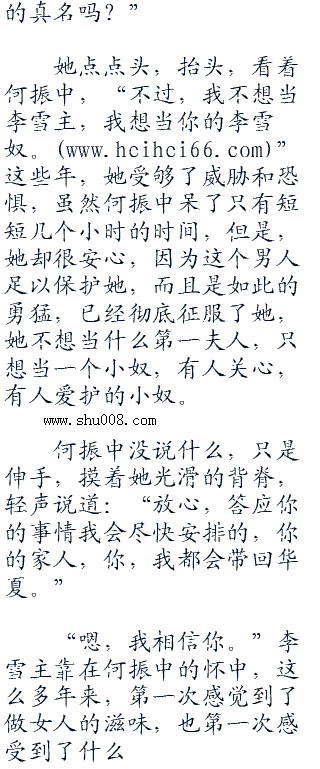 的真名吗？”
她点点头，抬头，看着
何振中，“不过，我不想当
李雪主，我想当你的李雪
奴。(www.hcihci66.com)”
这些年，她受够了威胁和恐
惧，虽然何振中呆了只有短
短几个小时的时间，但是，
她却很安心，因为这个男人
足以保护她，而且是如此的
勇猛，已经彻底征服了她，
她不想当什么第一夫人，只
想当一个小奴，有人关心，
有人爱护的小奴。
www.shu008.com
何振中没说什么，只是
伸手，摸着她光滑的背脊，
轻声说道：“放心，答应你
的事情我会尽快安排的，你
的家人，你，我都会带回华
夏。”
“嗯，我相信你。”李
雪主靠在何振中的怀中，这
么多年来，第一次感觉到了
做女人的滋味，也第一次感
受到了什么